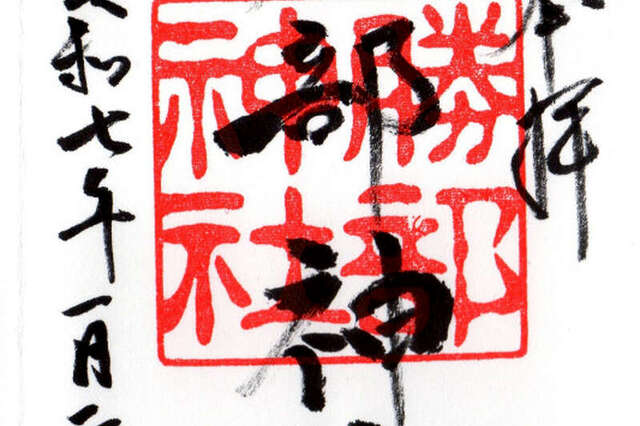 奉拝
部神
勝部
神社
令和七年一月